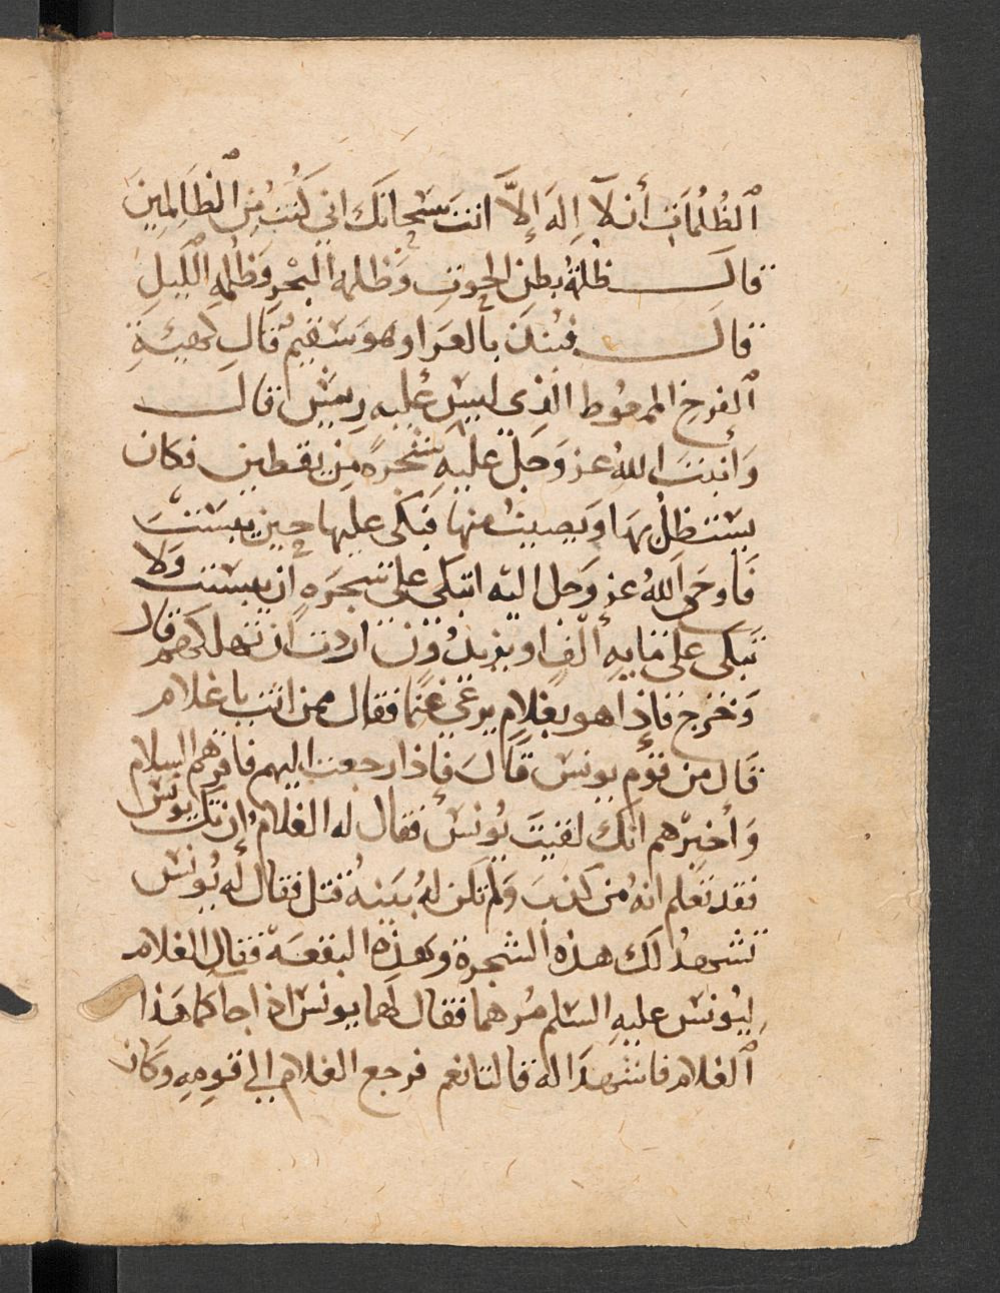 ٱلظُّلُمَاتِ أن لآ إِلَهَ إِلاَّ انتَ سُبْحانَكَ اني كُنتُ مِنَ ٱلظَالِمِينَ
قالَ ظلمة بطن الحوت وَظلمة البَحْرِ وَظُلمةِ اللَّيلِ
قالَ فنُبِذَ بالعَرا وهوَ سَقيمٌ قَال كهيئةِ
ٱلفرخ الممعُوط الّذِى ليسَ عليه رِيش قال
وَأنبتَ اللهُ عز وَجل عليهِ شجرةً مِن يقطين فكان
يستظلُ بهَا وَيصيبُ منها فبَكى عليها حين يبسَتْ
فَاوحَى اللهُ عز وَجل اليه اتبكى على شجَرَةٍ ان يبست وَلا
تبكى على مايه الفٍ او يزيدُون اردت ان تهلكهم قال
وَخرَج فإذا هو بغلامٍ يرعى غنمًا فقال ممن انت يا غلام
قال من قوم يونس قالَ فإذا رجعت اليهم فاقرهم السلام
وَأخبرْهم انكَ لقيتَ يُونسَ فقال له الغلامُ إن تك يونس
فقد تعلم انهُ من كذبَ وَلم تكن لهُ بَينةٌ قتل فقال له يُونس
تشهدُ لَك هذه الشجرة وَهذِه البقعَة فقال الغلام
لِيُونسَ عليهِ السلم مُرهما فقال لَهما يونس اذا جاكما هَذا
ٱلغلام فاشهدَا له قالتا نعم فرجع الغلام الى قومِهِ وكانَ